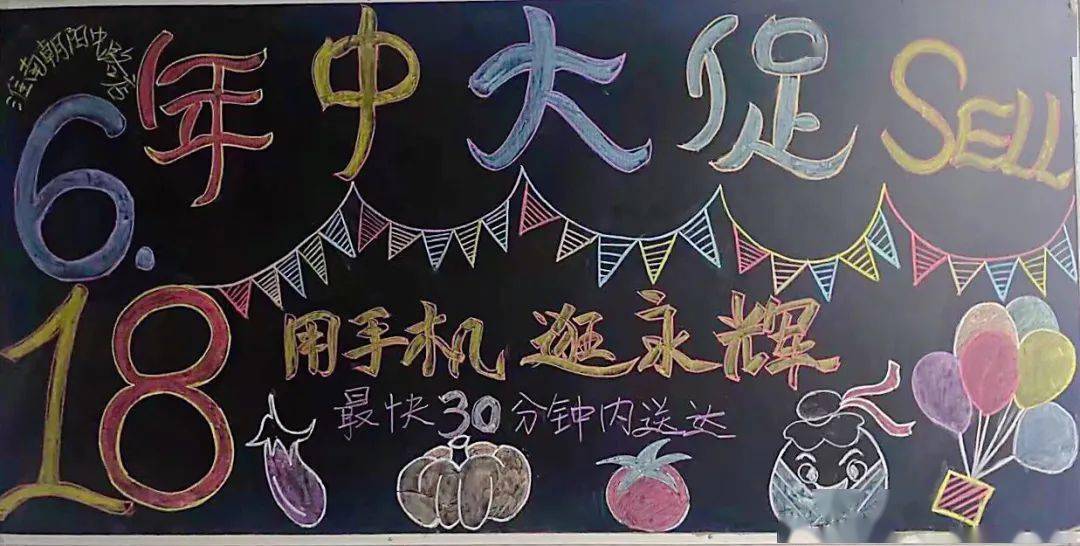 淮南朝阳电影店
6.
年中大促 SELL
18
用手机逛永辉
最快30分钟内送达